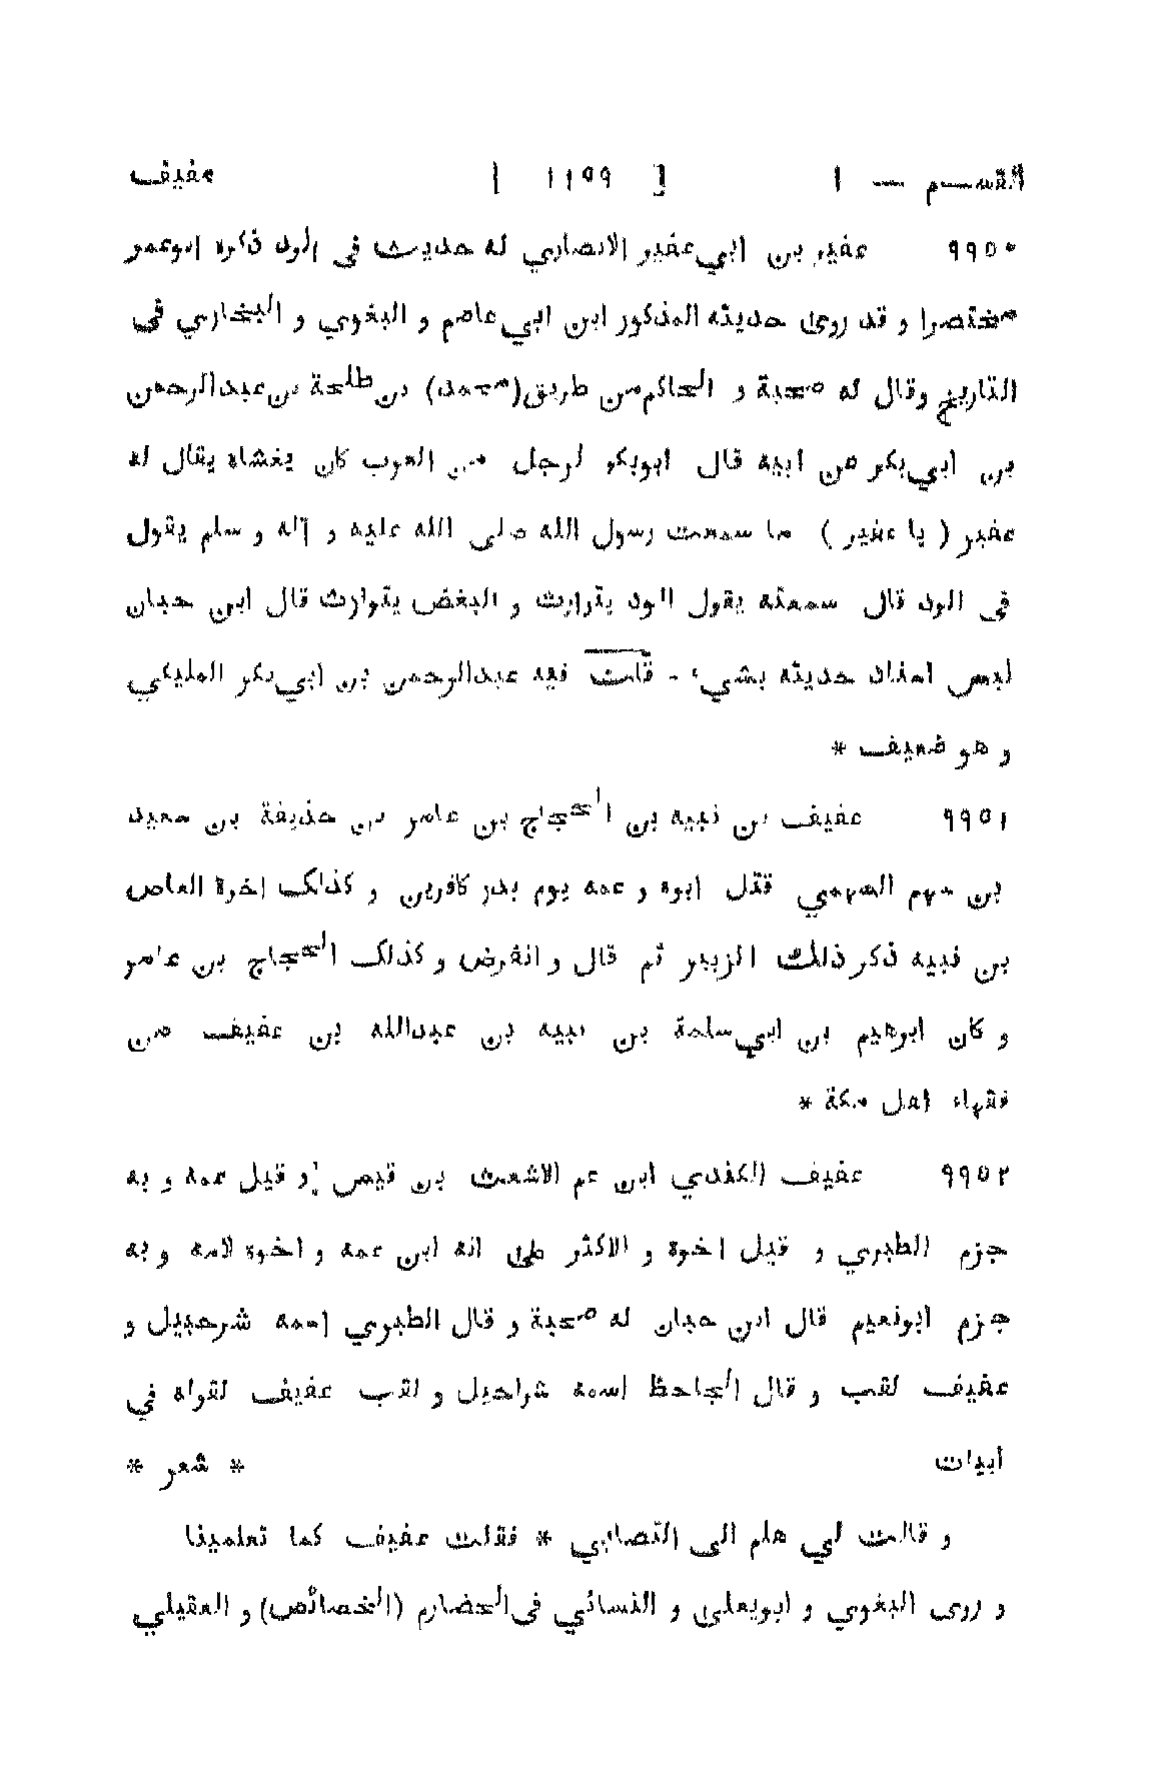 القسم — ١ [ ١١٥٩ ] عفيف
٩٩٥٠ عفير بن ابي عفير الانصاري له حديث فى الود ذكرة ابوعمر
مختصرا و قد روى حديثه المذكور ابن ابي عاصم و البغوي و البخاري فى
التاريخ وقال له صحبة و الحاكم من طريق (محمد) بن طلحة بن عبدالرحمن
بن ابي بكر عن ابيه قال ابوبكر لرجل من العرب كان يغشاه يقال له
عفير ( يا عفير ) ما سمعت رسول الله صلى الله عليه و آله و سلم يقول
فى الود قال سمعته يقول الود يتوارث و البغض يتوارث قال ابن حبان
ليس اسناد حديثه بشيء - قلت فيه عبدالرحمن بن ابي بكر المليكي
و هو ضعيف *
٩٩٥١ عفيف بن نبيه بن الحجاج بن عامر بن حذيفة بن سعيد
بن سهم السهمي قتل ابوه و عمه يوم بدر كافرين و كذلك اخوة العاص
بن نبيه ذكر ذلك الزبير ثم قال و انقرض و كذلك الحجاج بن عامر
و كان ابرهيم بن ابي سلمة بن نبيه بن عبدالله بن عفيف من
فقهاء اهل مكة *
٩٩٥٢ عفيف الكندي ابن عم الاشعث بن قيس و قيل عمه و به
جزم الطبري و قيل اخوة و الاكثر على انه ابن عمه و اخوة لامه و به
جزم ابونعيم قال ابن حبان له صحبة و قال الطبري اسمه شرحبيل و
عفيف لقب و قال الجاحظ اسمه شراحيل و لقب عفيف لقوله في
ابيات * شعر *
و قالت لي هلم الى التصابي * فقلت عفيف كما تعلمينا
و روى البغوي و ابويعلى و النسائي فى الحضارم (الخصائص) و العقيلي